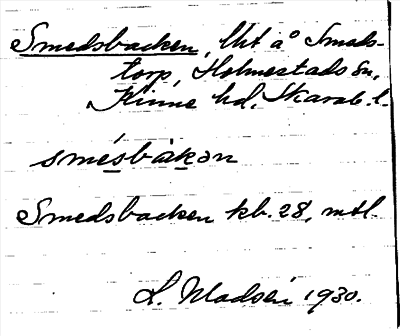 Smedsbacken, lht å Smeds-
torp, Holmestads sn,
Kinne hd, Skarab. l.
smésbàkən
Smedsbacken kb. 28, mtl.
L. Madsén 1930.